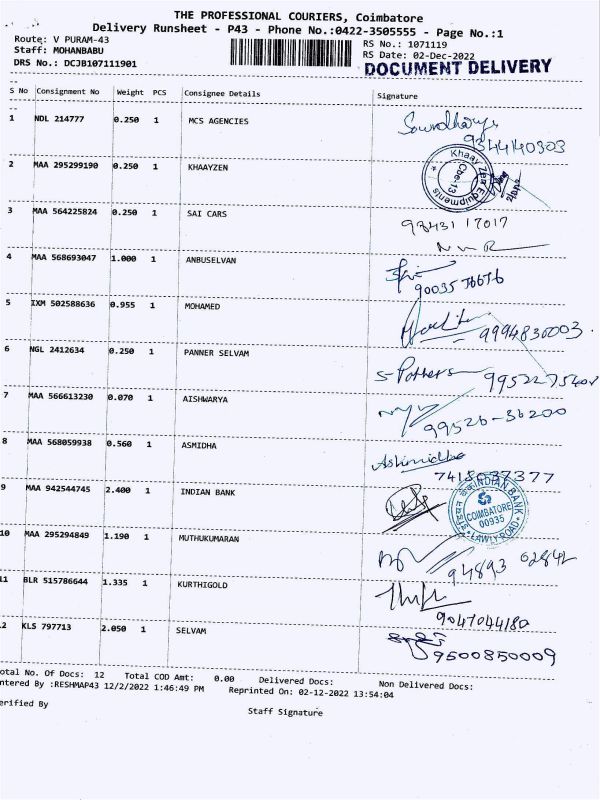 THE PROFESSIONAL COURIERS, Coimbatore
Delivery Runsheet - P43 - Phone No.:0422-3505555 - Page No.:1
Route: V PURAM-43 RS No.: 1071119
Staff: MOHANBABU RS Date: 02-Dec-2022
DRS No.: DCJB107111901 DOCUMENT DELIVERY
S No Consignment No Weight PCS Consignee Details Signature
1 NDL 214777 0.250 1 MCS AGENCIES
9344140303
2 MAA 295299190 0.250 1 KHAAYZEN Khaay Zen Equipments Cbe-13
3 MAA 564225824 0.250 1 SAI CARS 93431 17017
4 MAA 568693047 1.000 1 ANBUSELVAN
90035 76676
5 IXM 502588636 0.955 1 MOHAMED
9994836003.
6 NGL 2412634 0.250 1 PANNER SELVAM
7 MAA 566613230 0.070 1 AISHWARYA
99526-36200
8 MAA 568059938 0.560 1 ASMIDHA
7418037377
9 MAA 942544745 2.400 1 INDIAN BANK INDIAN BANK COIMBATORE 00935 LAWLY ROAD
10 MAA 295294849 1.190 1 MUTHUKUMARAN
94893 62842
11 BLR 515786644 1.335 1 KURTHIGOLD
9047044180
2 KLS 797713 2.050 1 SELVAM
9500850009
otal No. Of Docs: 12 Total COD Amt: 0.00 Delivered Docs: Non Delivered Docs:
ntered By :RESHMAP43 12/2/2022 1:46:49 PM Reprinted On: 02-12-2022 13:54:04
erified By Staff Signature